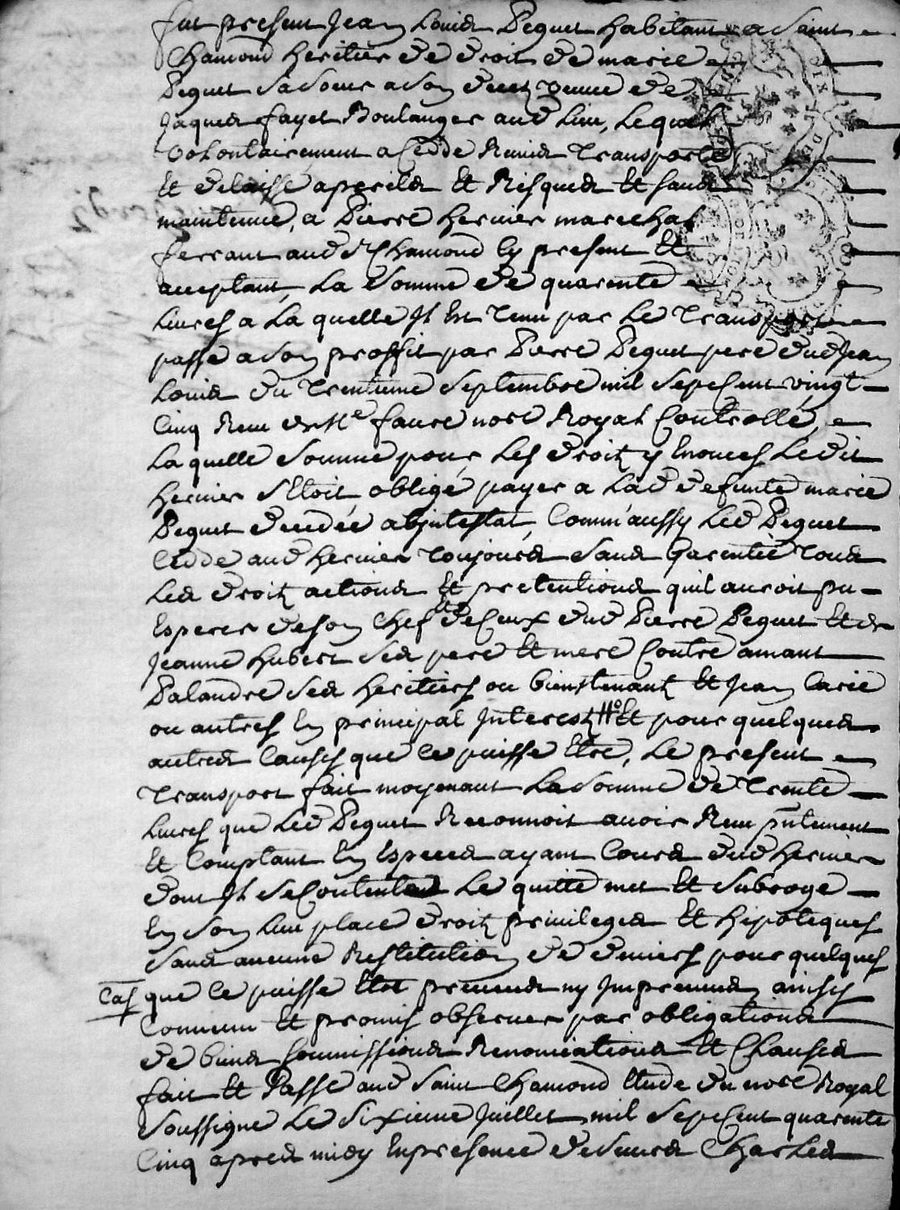 fut present Jean Louis Peguet habitant a Saint
Chamond heritier de droit de marie
Peguet sa soeur a son deces veuve de
Jaques fayet Boulanger aud Lieu, Lequel
volontairement a Cedde Remis Transporte
Et delaisse a perils Et Risques Et sans
maintenue, a Pierre hervier marechal
ferrant aud St Chamond Cy present Et
acceptant, La Somme de quarente
Livres a La quelle Il Est Tenu par Le Transport
passe a son proffit par Pierre Peguet pere dud Jean
Louis du Trentieme Septembre mil SepCent vingt
Cinq Receu de Me faure nore Royal Controllé,
La quelle Somme pour Les droitz y Enoncés Ledit
hervier S'Etoit obligé payer a Lad defunte marie
Peguet decedée abintestat, Comm'aussy Led Peguet
Cedde aud hervier Toujours Sans Garentie Tous
Les droitz actions Et pretentions quil auroit pu
Esperer de son Chef Et de Ceux dud Pierre Peguet Et de
Jeanne hubert Ses pere Et mere Contre amant
Palandre Ses heritiers ou bienstenantz Et Jean Carie
ou autres En principal Interestz Et pour quelques
autres Causes que Ce puisse Etre, Le present
Transport fait moyenant La Somme de Trente
Livres que Led Peguet Reconnoit avoir Receu pñtement
Et Comptant En Especes ayant Cours dud hervier
dont Il Se Contente Le quitte met Et Subroge
En Son Lieu place droitz privileges Et hipoteques
Sans aucune Restitution de deniers pour quelques
Cas que Ce puisse Etre preveus ny Impreveus ainsy
Convenu Et promis observer par obligations
de biens Soumissions Renonciations Et Clauses
fait Et Passé aud Saint Chamond Etude du nore Royal
Soussigne Le Sixieme Juillet mil SepCent quarente
Cinq apres midy En presence de Sieurs Charles